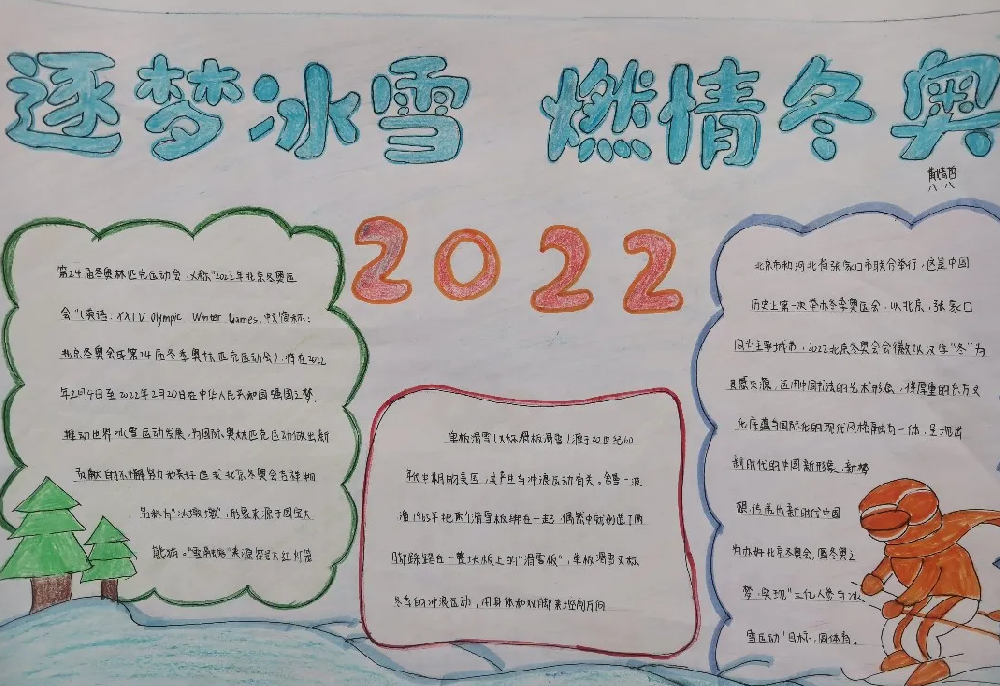 逐梦冰雪 燃情冬奥
2022
第24届冬奥林匹克运动会,又称"2022年北京冬奥运
会"(英语:XXIV Olympic Winter Games,中文简称:
北京冬奥会或第24届冬季奥林匹克运动会),将在2022
年2月4日至2022年2月20日在中华人民共和国 强国之梦.
推动世界冰雪运动发展,为国际奥林匹克运动做出新
贡献的不懈努力和美好追求北京冬奥会吉祥物
"冰墩墩",的要来源于国宝大
熊猫。"雪容融"来源 大红灯笼
单板滑雪(又称滑板滑雪)源于20世纪60
年代中期的美国,其产生与冲浪运动有关。合雪一浪
1965年把两个滑雪板绑在一起,偶然中就创造了两
脚踩踏在一整块板上的"滑雪板",单板滑雪又称
冬季的冲浪运动,用身体和双脚来控制方向
北京市和河北省张家口市联合举行,这是中国
历史上第一次举办冬季奥运会,以北京,张家口
为主举城市,2022北京冬奥会会徽以汉字"冬"为
灵感来源,运用中国书法的艺术形态,将厚重的东方文
化底蕴与国际化的现代风格融为一体,呈现出
新时代的中国新形象、新梦
想,传 新时代中国
为办好北京冬奥会,圆冬奥之
梦,实现"三亿人参与冰
雪运动"目标,圆体育